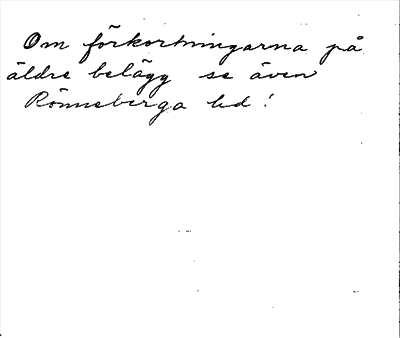 Om förkortningarna på
äldre belägg se även
Rönneberga hd!